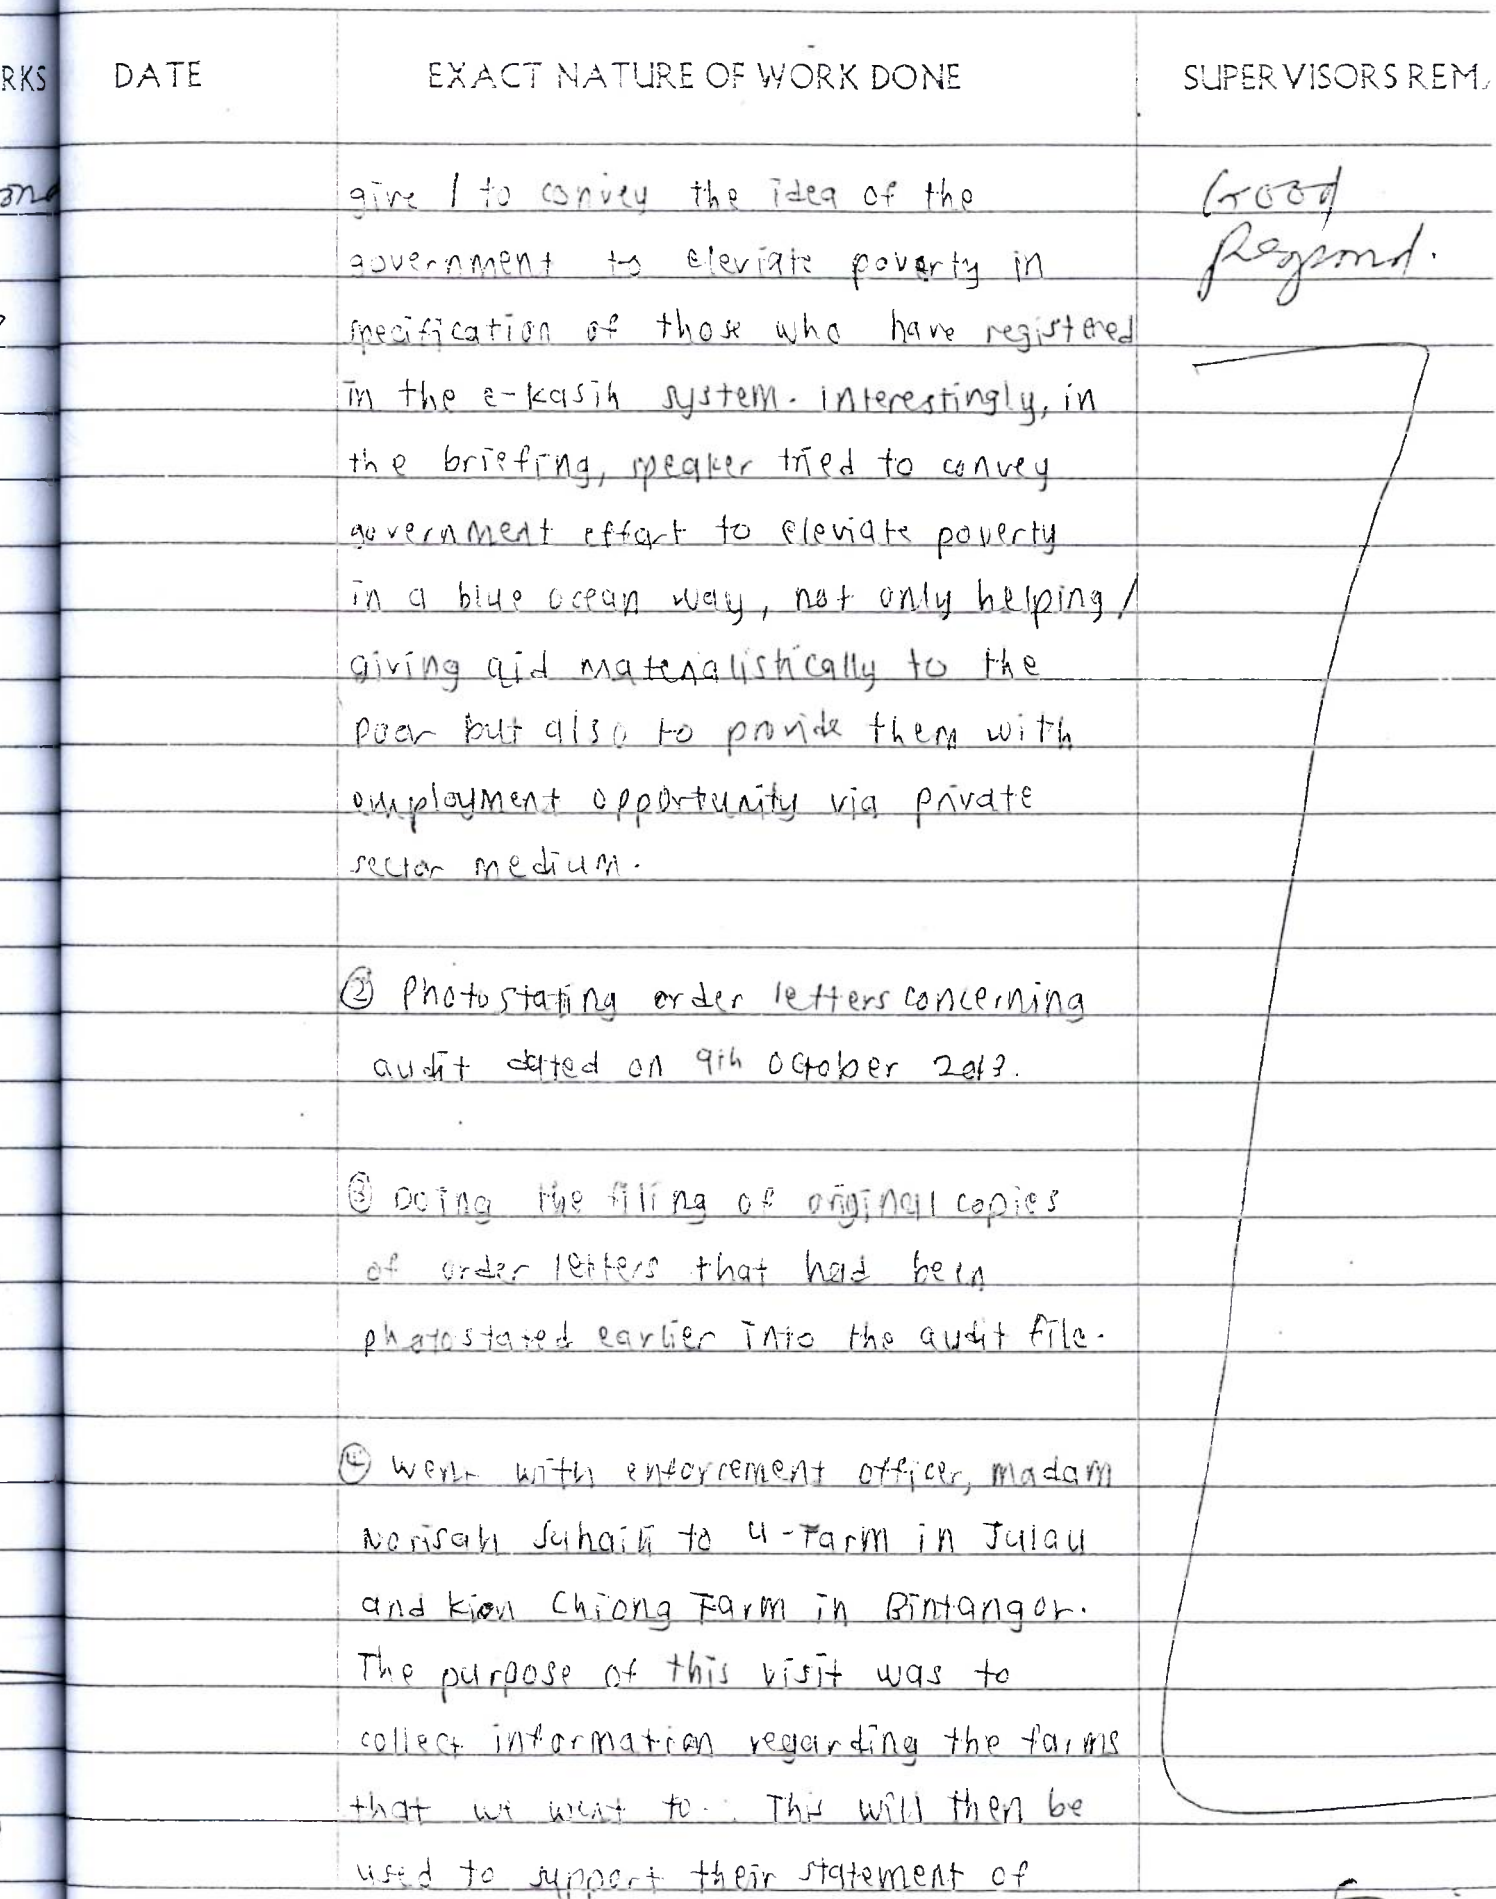 RKS DATE EXACT NATURE OF WORK DONE SUPERVISORS REM
give / to convey the idea of the
government to eleviate poverty in
specification of those who have registered
in the e-kasih system. Interestingly, in
the briefing, speaker tried to convey
government effort to eleviate poverty
in a blue ocean way, not only helping /
giving aid materialistically to the
poor but also to provide them with
employment opportunity via private
sector medium.
② Photostating order letters concerning
audit dated on 9th October 2013.
③ Doing the filing of original copies
of order letters that had been
photostated earlier into the audit file.
④ Went with enforcement officer, madam
Norisah Suhaili to U-Farm in Julau
and Kion Chiong Farm in Bintangor.
The purpose of this visit was to
collect information regarding the farms
that we went to. This will then be
used to support their statement of
Good
Respond.